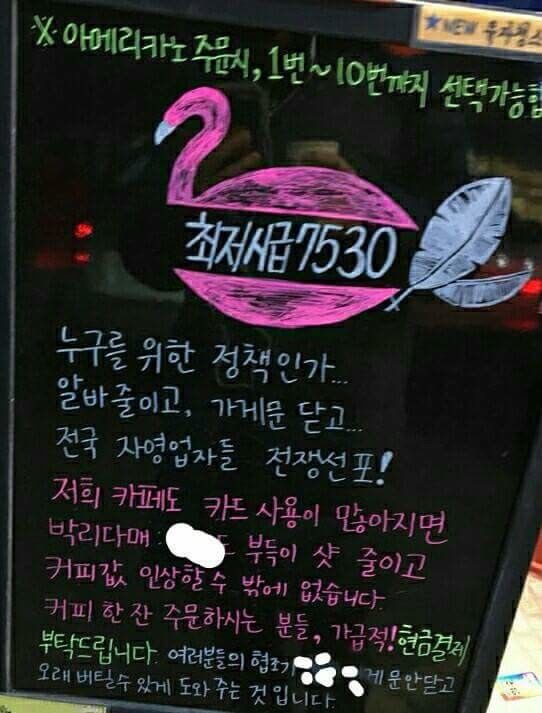 ★NEW 유자
※ 아메리카노 주문시, 1번~10번까지 선택가능합
최저시급 7530
누구를 위한 정책인가...
알바줄이고, 가게문 닫고...
전국 자영업자들 전쟁선포!
저희 카페도 카드 사용이 많아지면
박리다매 도 부득이 샷 줄이고
커피값 인상할 수 밖에 없습니다.
커피 한 잔 주문하시는 분들, 가급적! 현금결제
부탁드립니다. 여러분들의 협조가 게 문 안닫고
오래 버틸수 있게 도와주는 것 입니다.